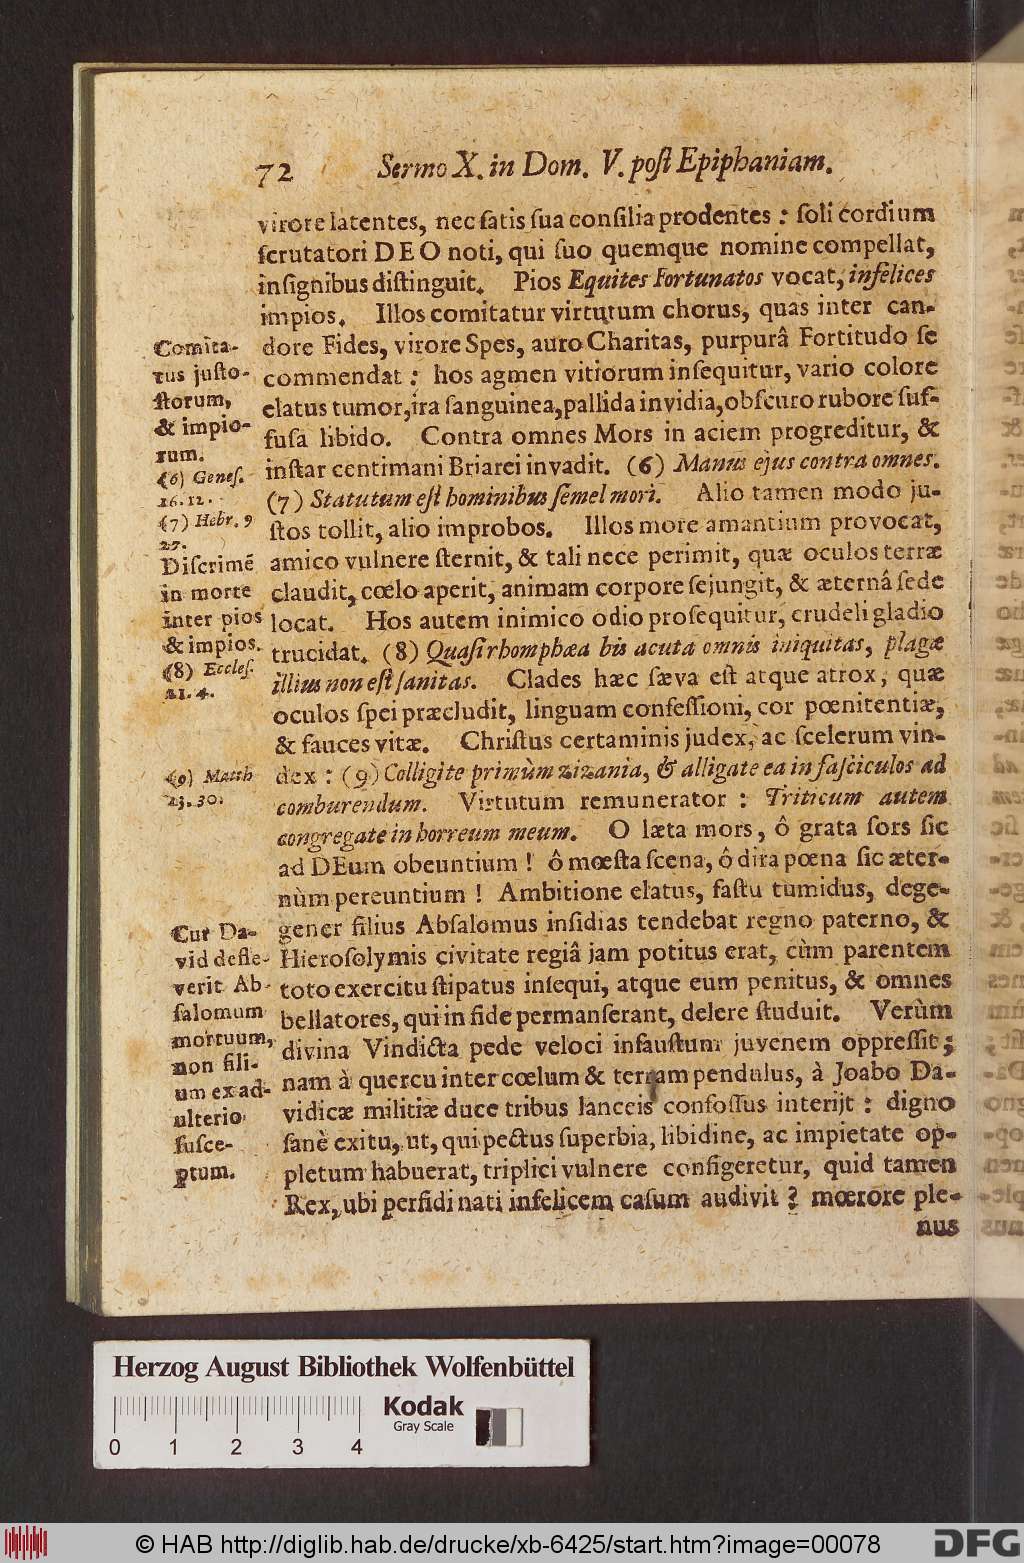 72 Sermo X. in Dom. V. poſt Epiphaniam.
virore latentes, nec ſatis ſua conſilia prodentes : ſoli cordium
ſcrutatori DEO noti, qui ſuo quemque nomine compellat,
inſignibus diſtinguit. Pios Equites Fortunatos vocat, infelices
impios. Illos comitatur virtutum chorus, quas inter can-
dore Fides, virore Spes, auro Charitas, purpurâ Fortitudo ſe
commendat : hos agmen vitiorum inſequitur, vario colore
elatus tumor, ira ſanguinea, pallida invidia, obſcuro rubore ſuf-
fuſa libido. Contra omnes Mors in aciem progreditur, &
inſtar centimani Briarei invadit. (6) Manus ejus contra omnes.
(7) Statutum eſt hominibus ſemel mori. Alio tamen modo ju-
ſtos tollit, alio improbos. Illos more amantium provocat,
amico vulnere ſternit, & tali nece perimit, quæ oculos terræ
claudit, cœlo aperit, animam corpore ſejungit, & æternâ ſede
locat. Hos autem inimico odio proſequitur, crudeli gladio
trucidat. (8) Quaſi rhomphæa bis acuta omnis iniquitas, plagæ
illius non eſt ſanitas. Clades hæc ſæva eſt atque atrox, quæ
oculos ſpei præcludit, linguam confeſſioni, cor pœnitentiæ,
& fauces vitæ. Chriſtus certaminis judex, ac ſcelerum vin-
dex : (9) Colligite primùm zizania, & alligate ea in faſciculos ad
comburendum. Virtutum remunerator : Triticum autem
congregate in horreum meum. O læta mors, ô grata ſors ſic
ad DEum obeuntium ! ô mœſta ſcena, ô dira pœna ſic æter-
nùm pereuntium ! Ambitione elatus, faſtu tumidus, dege-
gener filius Abſalomus inſidias tendebat regno paterno, &
Hieroſolymis civitate regiâ jam potitus erat, cùm parentem
toto exercitu ſtipatus inſequi, atque eum penitus, & omnes
bellatores, qui in fide permanſerant, delere ſtuduit. Verùm
divina Vindicta pede veloci infauſtum juvenem oppreſſit;
nam à quercu inter cœlum & terram pendulus, à Joabo Da-
vidicæ militiæ duce tribus lanceis confoſſus interijt : digno
ſanè exitu, ut, qui pectus ſuperbia, libidine, ac impietate op-
pletum habuerat, triplici vulnere configeretur, quid tamen
Rex, ubi perfidi nati infelicem caſum audivit ? mœrore ple-
nus
Comita-
tus juſto-
ſtorum,
& impio-
rum.
(6) Geneſ.
16. 12.
(7) Hebr. 9
27.
Diſcrimē
in morte
inter pios
& impios.
(8) Eccleſ.
21. 4.
(9) Matth
13. 30.
Cur Da-
vid defle-
verit Ab-
ſalomum
mortuum,
non fili-
um ex ad-
ulterio
ſuſce-
ptum.
Herzog August Bibliothek Wolfenbüttel
Kodak
Gray Scale
0 1 2 3 4
© HAB http://diglib.hab.de/drucke/xb-6425/start.htm?image=00078
DFG